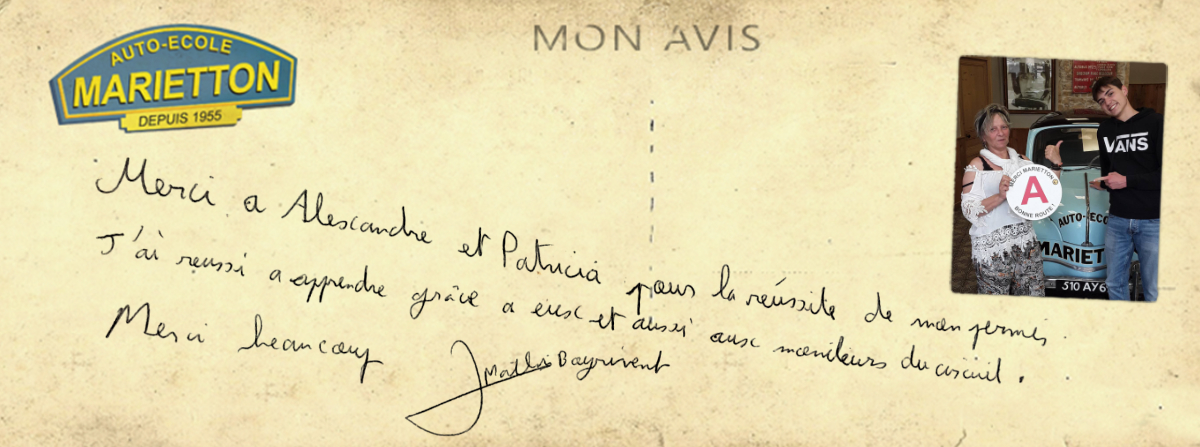 AUTO-ECOLE
MARIETTON
DEPUIS 1955
MON AVIS
Merci a Alexandre et Patricia pour la réussite de mon permis.
J'ai reussi a apprendre grâce a eux et aussi aux moniteurs du circuit.
Merci beaucoup
VANS
MERCI MARIETTON
A
BONNE ROUTE !
AUTO-ECO
MARIET
510 AY6